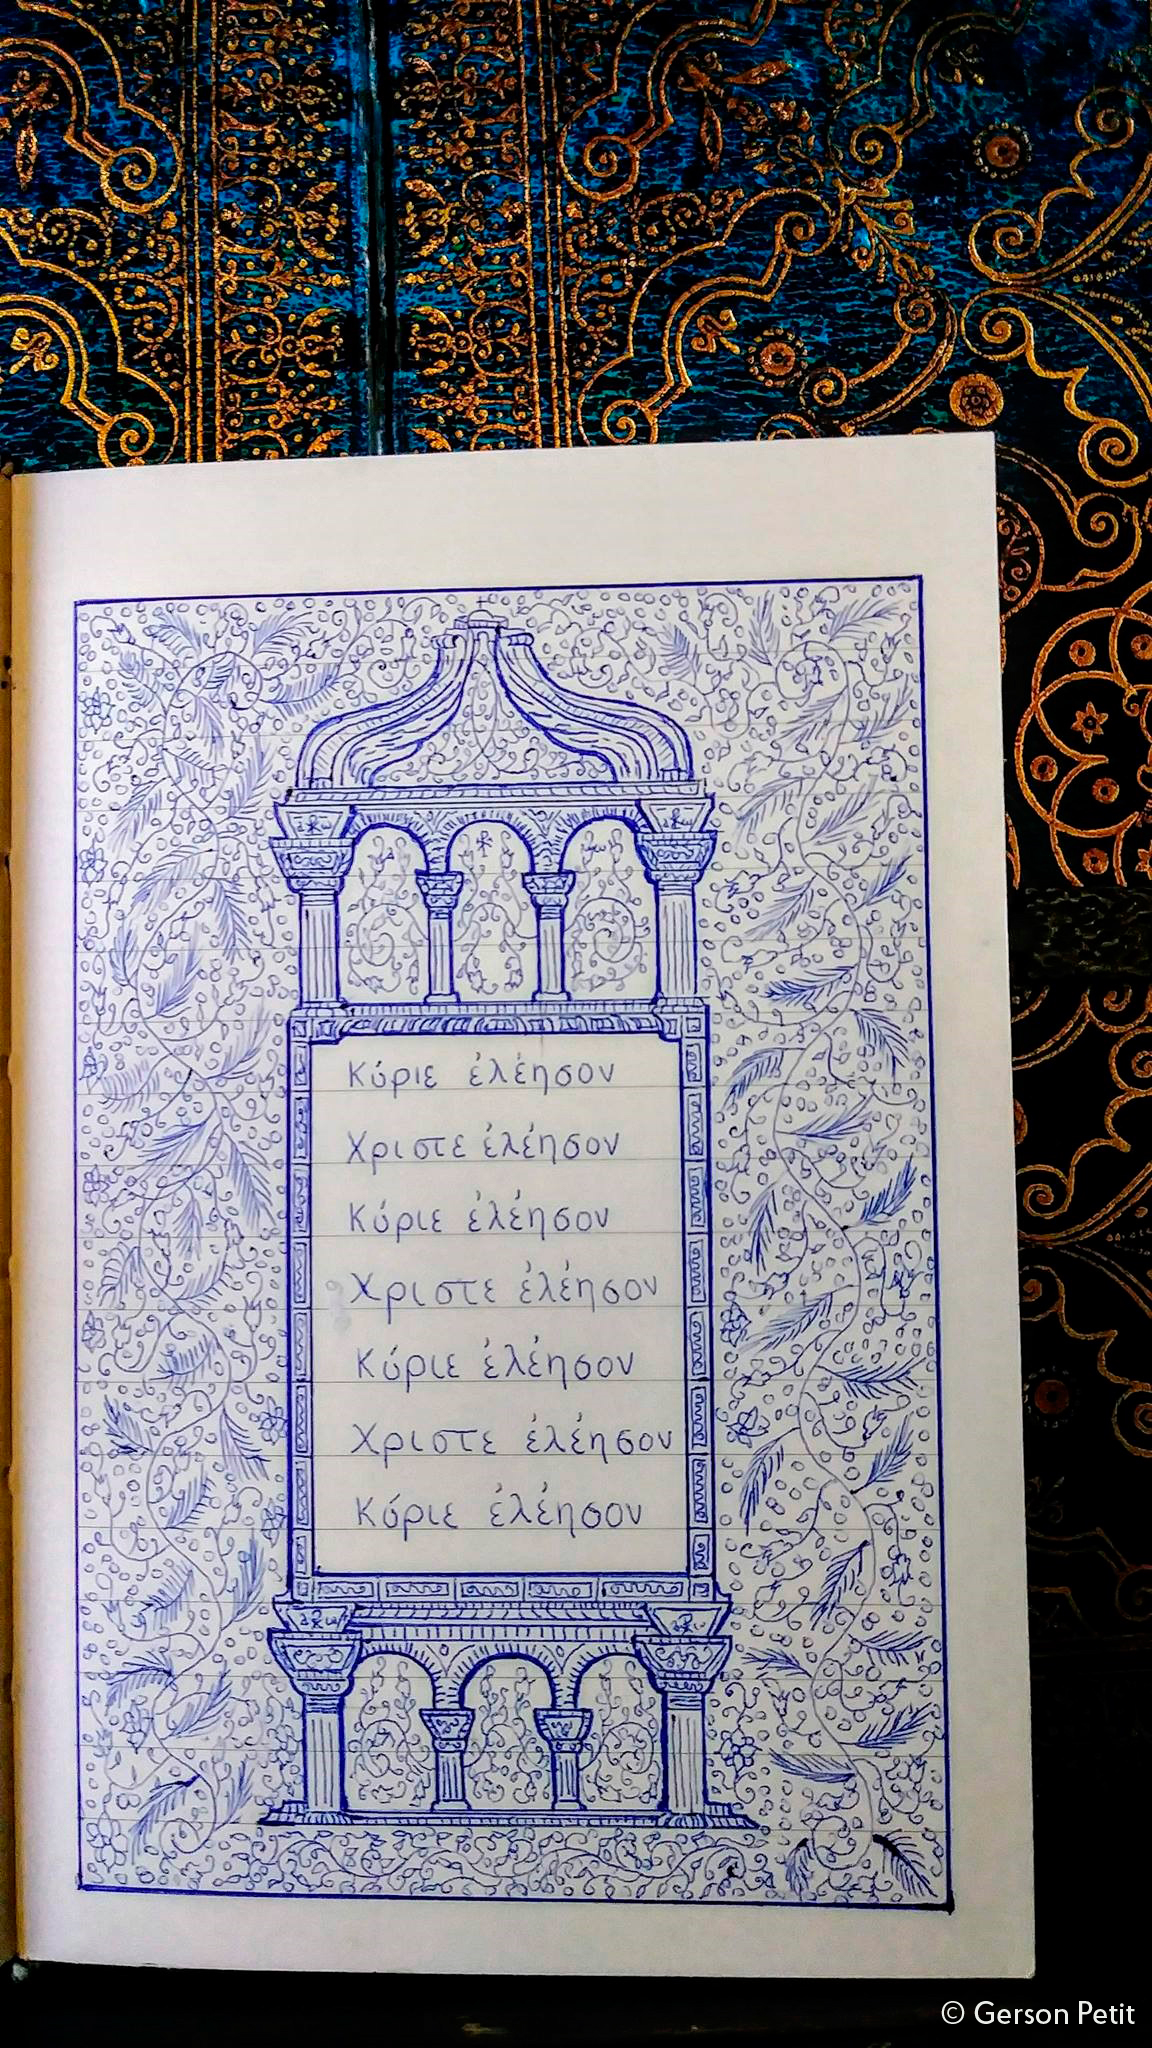 Κύριε ἐλέησον
Χριστε ἐλέησον
Κύριε ἐλέησον
Χριστε ἐλέησον
Κύριε ἐλέησον
Χριστε ἐλέησον
Κύριε ἐλέησον
© Gerson Petit